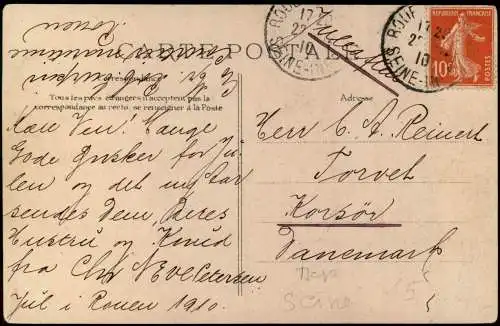 CARTE POSTALE
Correspondance
Tous les pays étrangers n'acceptent pas la
correspondance au recto, se renseigner à la Poste
Adresse
Kære Ven! Mange
Gode Ønsker for Ju-
len og det ny Aar
sendes Dem, Deres
Hustru og Knud
fra Chr. N. Eve Petersen
Jul i Rouen 1910.
Rouen
Herr C. A. Reinert
Torvet
Korsör
Danemark
Seine
ROUEN
17
22
10
SEINE-INF
ROUEN
17
10
SEINE-IN
REPUBLIQUE FRANÇAISE
10